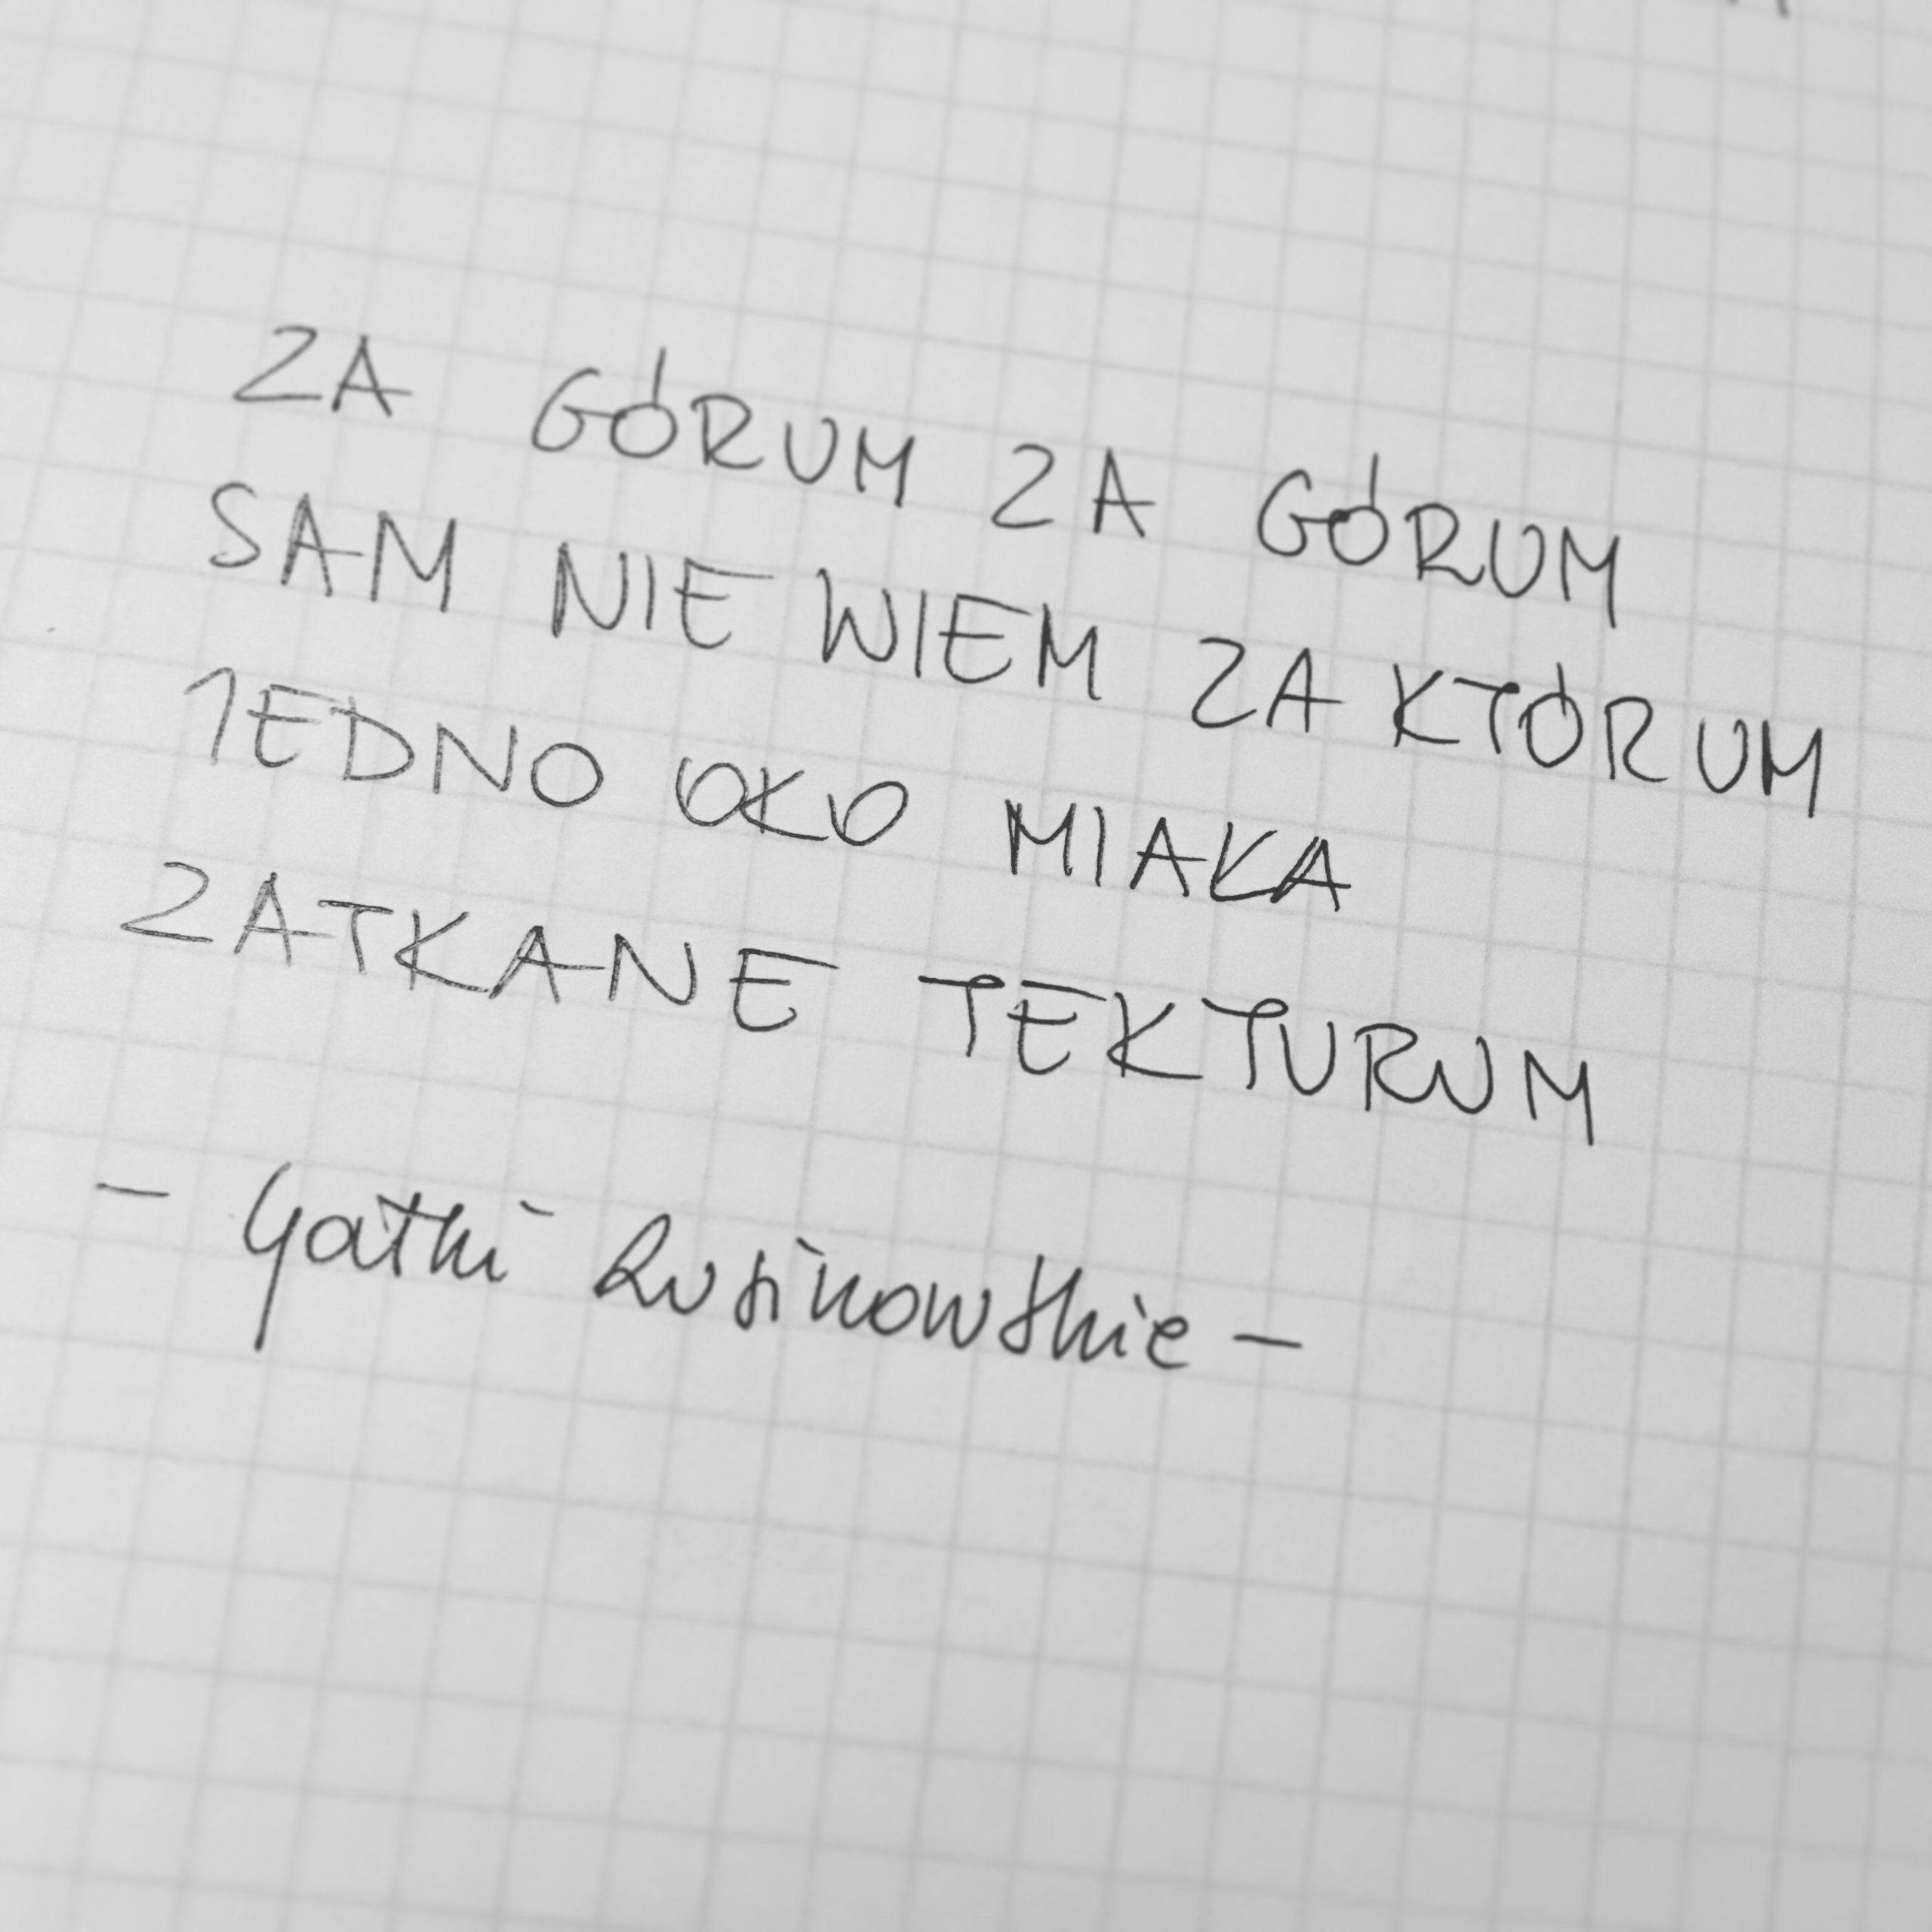 ZA GÓRUM ZA GÓRUM
SAM NIE WIEM ZA KTÓRUM
JEDNO OKO MIAŁA
ZATKANE TEKTURUM
- Gatki Rusinowskie -